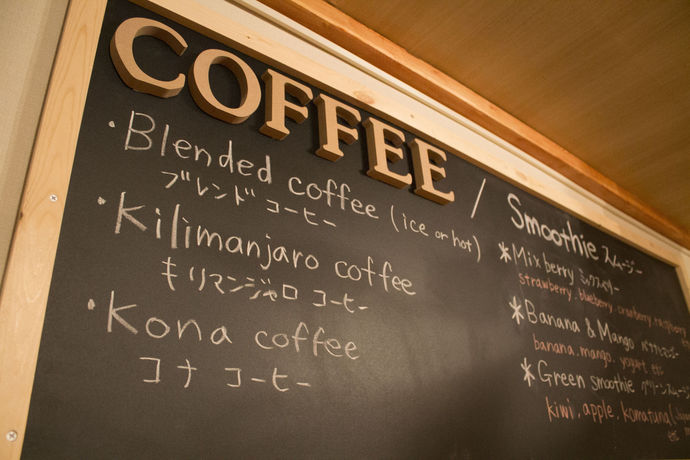 COFFEE / Smoothie スムージー
・Blended coffee (ice or hot)
ブレンド コーヒー
・Kilimanjaro coffee
キリマンジャロ コーヒー
・Kona coffee
コナ コーヒー
*Mixberry ミックスベリー
strawberry. blueberry. cranberry. raspberry
*Banana & Mango
banana. mango. yogurt etc
*Green smoothie グリーンスムージー
kiwi, apple, komatuna
etc